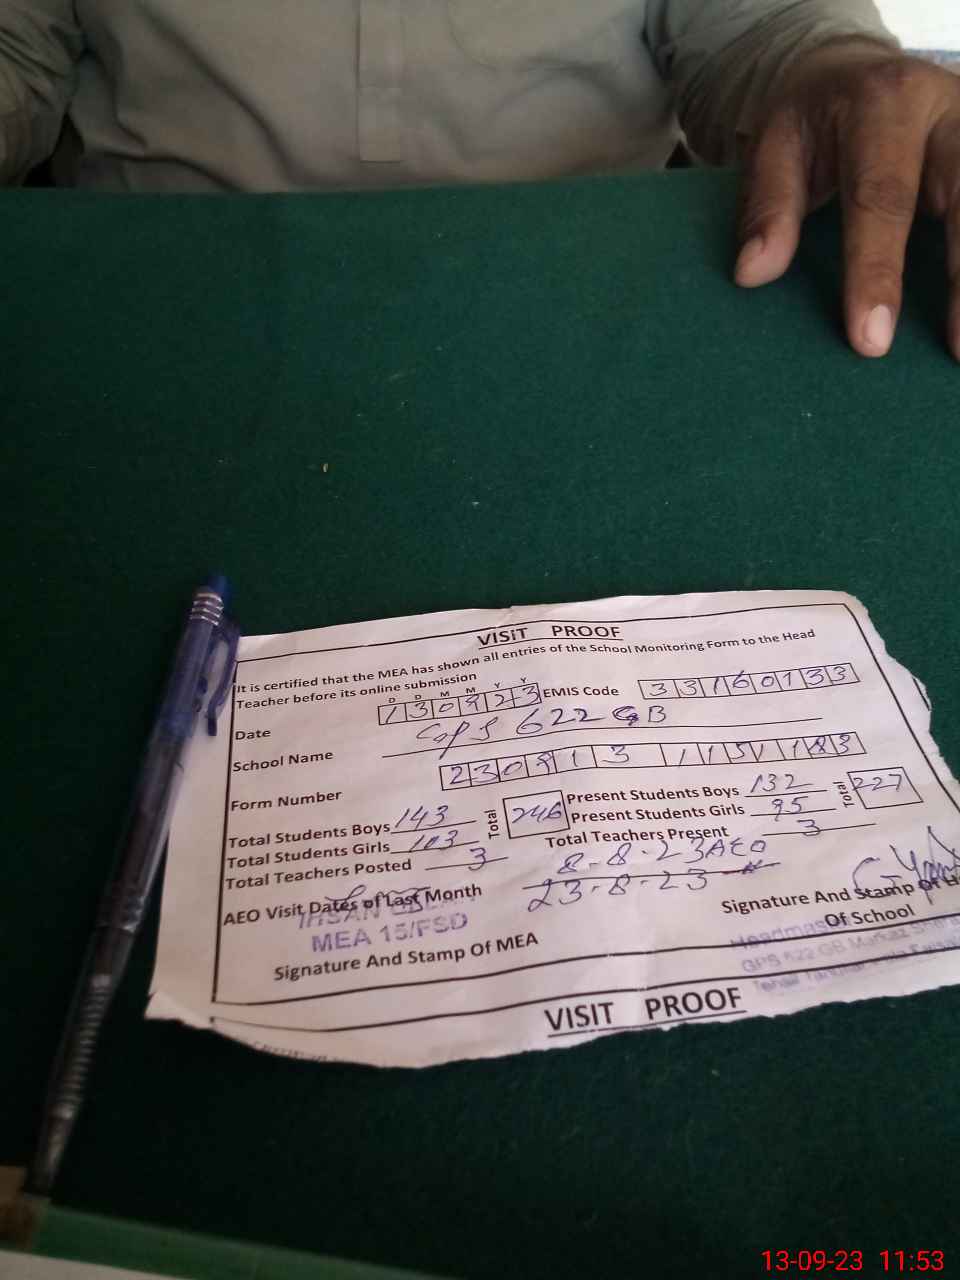 VISIT PROOF
It is certified that the MEA has shown all entries of the School Monitoring Form to the Head
Teacher before its online submission
D D M M Y Y
Date 130923 EMIS Code 33160133
School Name 622 GB
Form Number 230913
Total Students Boys 143 Total 246 Present Students Boys 132 Total 227
Total Students Girls 103 Present Students Girls 95
Total Teachers Posted 3 Total Teachers Present 3
AEO Visit Dates of Last Month 8-8-23 AEO
23-8-23
IHSAN
MEA 15/FSD
Signature And Stamp Of MEA
Signature And Stamp Of
Of School
Headmaster
GPS 622 GB Markaz
VISIT PROOF
13-09-23 11:53